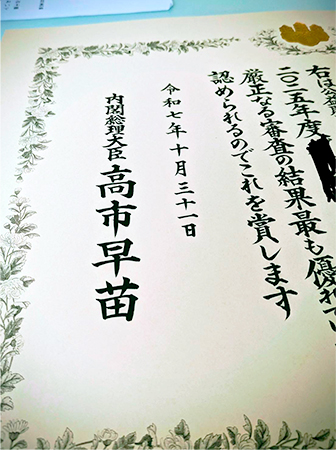 右は
二〇二五年度
厳正なる審査の結果最も優れ
認められるのでこれを賞します
令和七年十月三十一日
内閣総理大臣 高市早苗